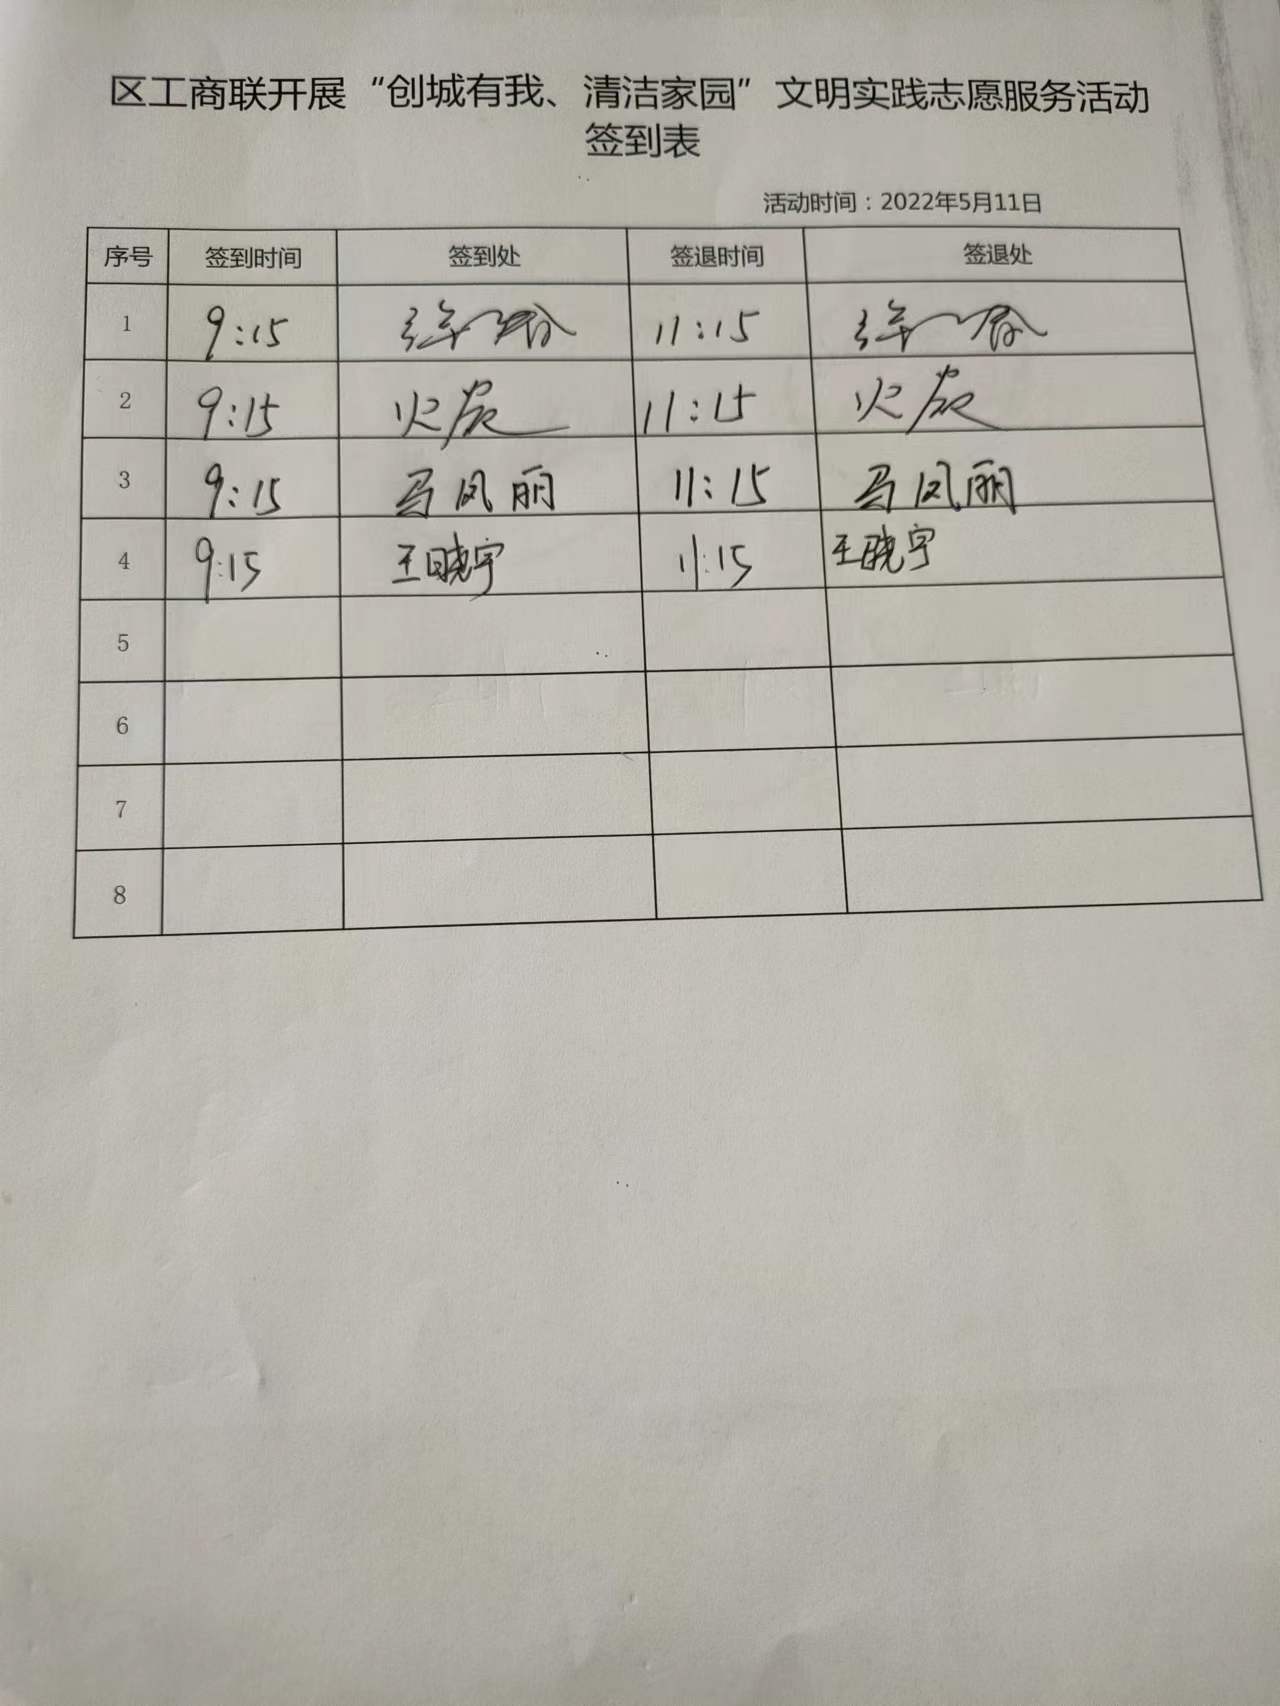 区工商联开展“创城有我、清洁家园”文明实践志愿服务活动
签到表
活动时间：2022年5月11日
序号 签到时间 签到处 签退时间 签退处
1 9:15 11:15
2 9:15 火 11:15 火
3 9:15 马凤丽 11:15 马凤丽
4 9:15 王晓宇 11:15 王晓宇
5
6
7
8